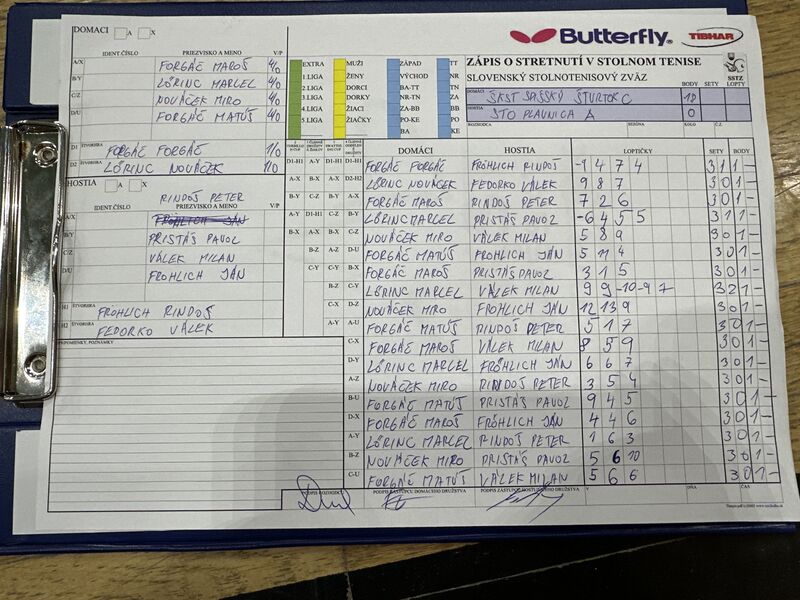 DOMACI A X
Butterfly.
TIBHAR
IDENT.ČÍSLO PRIEZVISKO A MENO V/P
ZÁPIS O STRETNUTÍ V STOLNOM TENISE
SLOVENSKÝ STOLNOTENISOVÝ ZVÄZ
SSTZ
A/X FORGÁČ MAROŠ 4/0
B/Y LŐRINC MARCEL 4/0
C/Z NOVÁČEK MIRO 4/0
D/U FORGÁČ MATÚŠ 4/0
D1 ŠTVORHRA FORGÁČ FORGÁČ 1/0
D2 ŠTVORHRA LŐRINC NOVÁČEK 1/0
EXTRA MUŽI ZÁPAD TT
1.LIGA ŽENY VÝCHOD NR
2.LIGA DORCI BA-TT TN
3.LIGA DORKY NR-TN ZA
4.LIGA ŽIACI ZA-BB BB
5.LIGA ŽIAČKY PO-KE PO
BA KE
BODY SETY LOPTY
DOMÁCI ŠKST SPIŠSKÝ ŠTVRTOK C 18
HOSTIA STO PLAVNICA A 0
ROZHODCA SEZÓNA KOLO Č.Z.
HOSTIA A X
IDENT.ČÍSLO PRIEZVISKO A MENO V/P
RINDOŠ PETER
A/X FRÖHLICH JÁN
B/Y PRISTÁŠ PAVOL
C/Z VÁLEK MILAN
D/U FRÖHLICH JÁN
H1 ŠTVORHRA FRÖHLICH RINDOŠ
H2 ŠTVORHRA FEDORKO VÁLEK
PRIPOMIENKY, POZNÁMKY
DOMÁCI HOSTIA LOPTIČKY SETY BODY
D1-H1 A-Y D1-H1 D1-H1 FORGÁČ FORGÁČ FRÖHLICH RINDOŠ -9 4 7 4 3 1 1 -
A-X B-X A-X D2-H2 LŐRINC NOVÁČEK FEDORKO VÁLEK 9 8 7 3 0 1 -
B-Y C-Z B-Y A-X FORGÁČ MAROŠ RINDOŠ PETER 7 2 6 3 0 1 -
A-Y D1-H1 C-Z B-Y LŐRINC MARCEL PRISTÁŠ PAVOL -6 4 5 5 3 1 1 -
B-X A-X B-X C-Z NOVÁČEK MIRO VÁLEK MILAN 5 8 9 3 0 1 -
B-Z A-Z D-U FORGÁČ MATÚŠ FRÖHLICH JÁN 5 11 4 3 0 1 -
C-Y C-Y B-X FORGÁČ MAROŠ PRISTÁŠ PAVOL 3 1 5 3 0 1 -
B-Z C-Y LŐRINC MARCEL VÁLEK MILAN 9 9 -10 -9 7 3 2 1 -
C-X D-Z NOVÁČEK MIRO FRÖHLICH JÁN 12 13 9 3 0 1 -
A-Y A-U FORGÁČ MATÚŠ RINDOŠ PETER 5 1 7 3 0 1 -
C-X FORGÁČ MAROŠ VÁLEK MILAN 8 5 9 3 0 1 -
D-Y LŐRINC MARCEL FRÖHLICH JÁN 6 6 7 3 0 1 -
A-Z NOVÁČEK MIRO RINDOŠ PETER 3 5 4 3 0 1 -
B-U FORGÁČ MATÚŠ PRISTÁŠ PAVOL 9 4 5 3 0 1 -
D-X FORGÁČ MAROŠ FRÖHLICH JÁN 4 4 6 3 0 1 -
A-Y LŐRINC MARCEL RINDOŠ PETER 1 6 3 3 0 1 -
B-Z NOVÁČEK MIRO PRISTÁŠ PAVOL 5 6 10 3 0 1 -
C-U FORGÁČ MATÚŠ VÁLEK MILAN 5 6 6 3 0 1 -
PODPIS ROZHODCU PODPIS ZÁSTUPCU DOMÁCEHO DRUŽSTVA PODPIS ZÁSTUPCU HOSŤUJÚCEHO DRUŽSTVA V DŇA ČAS